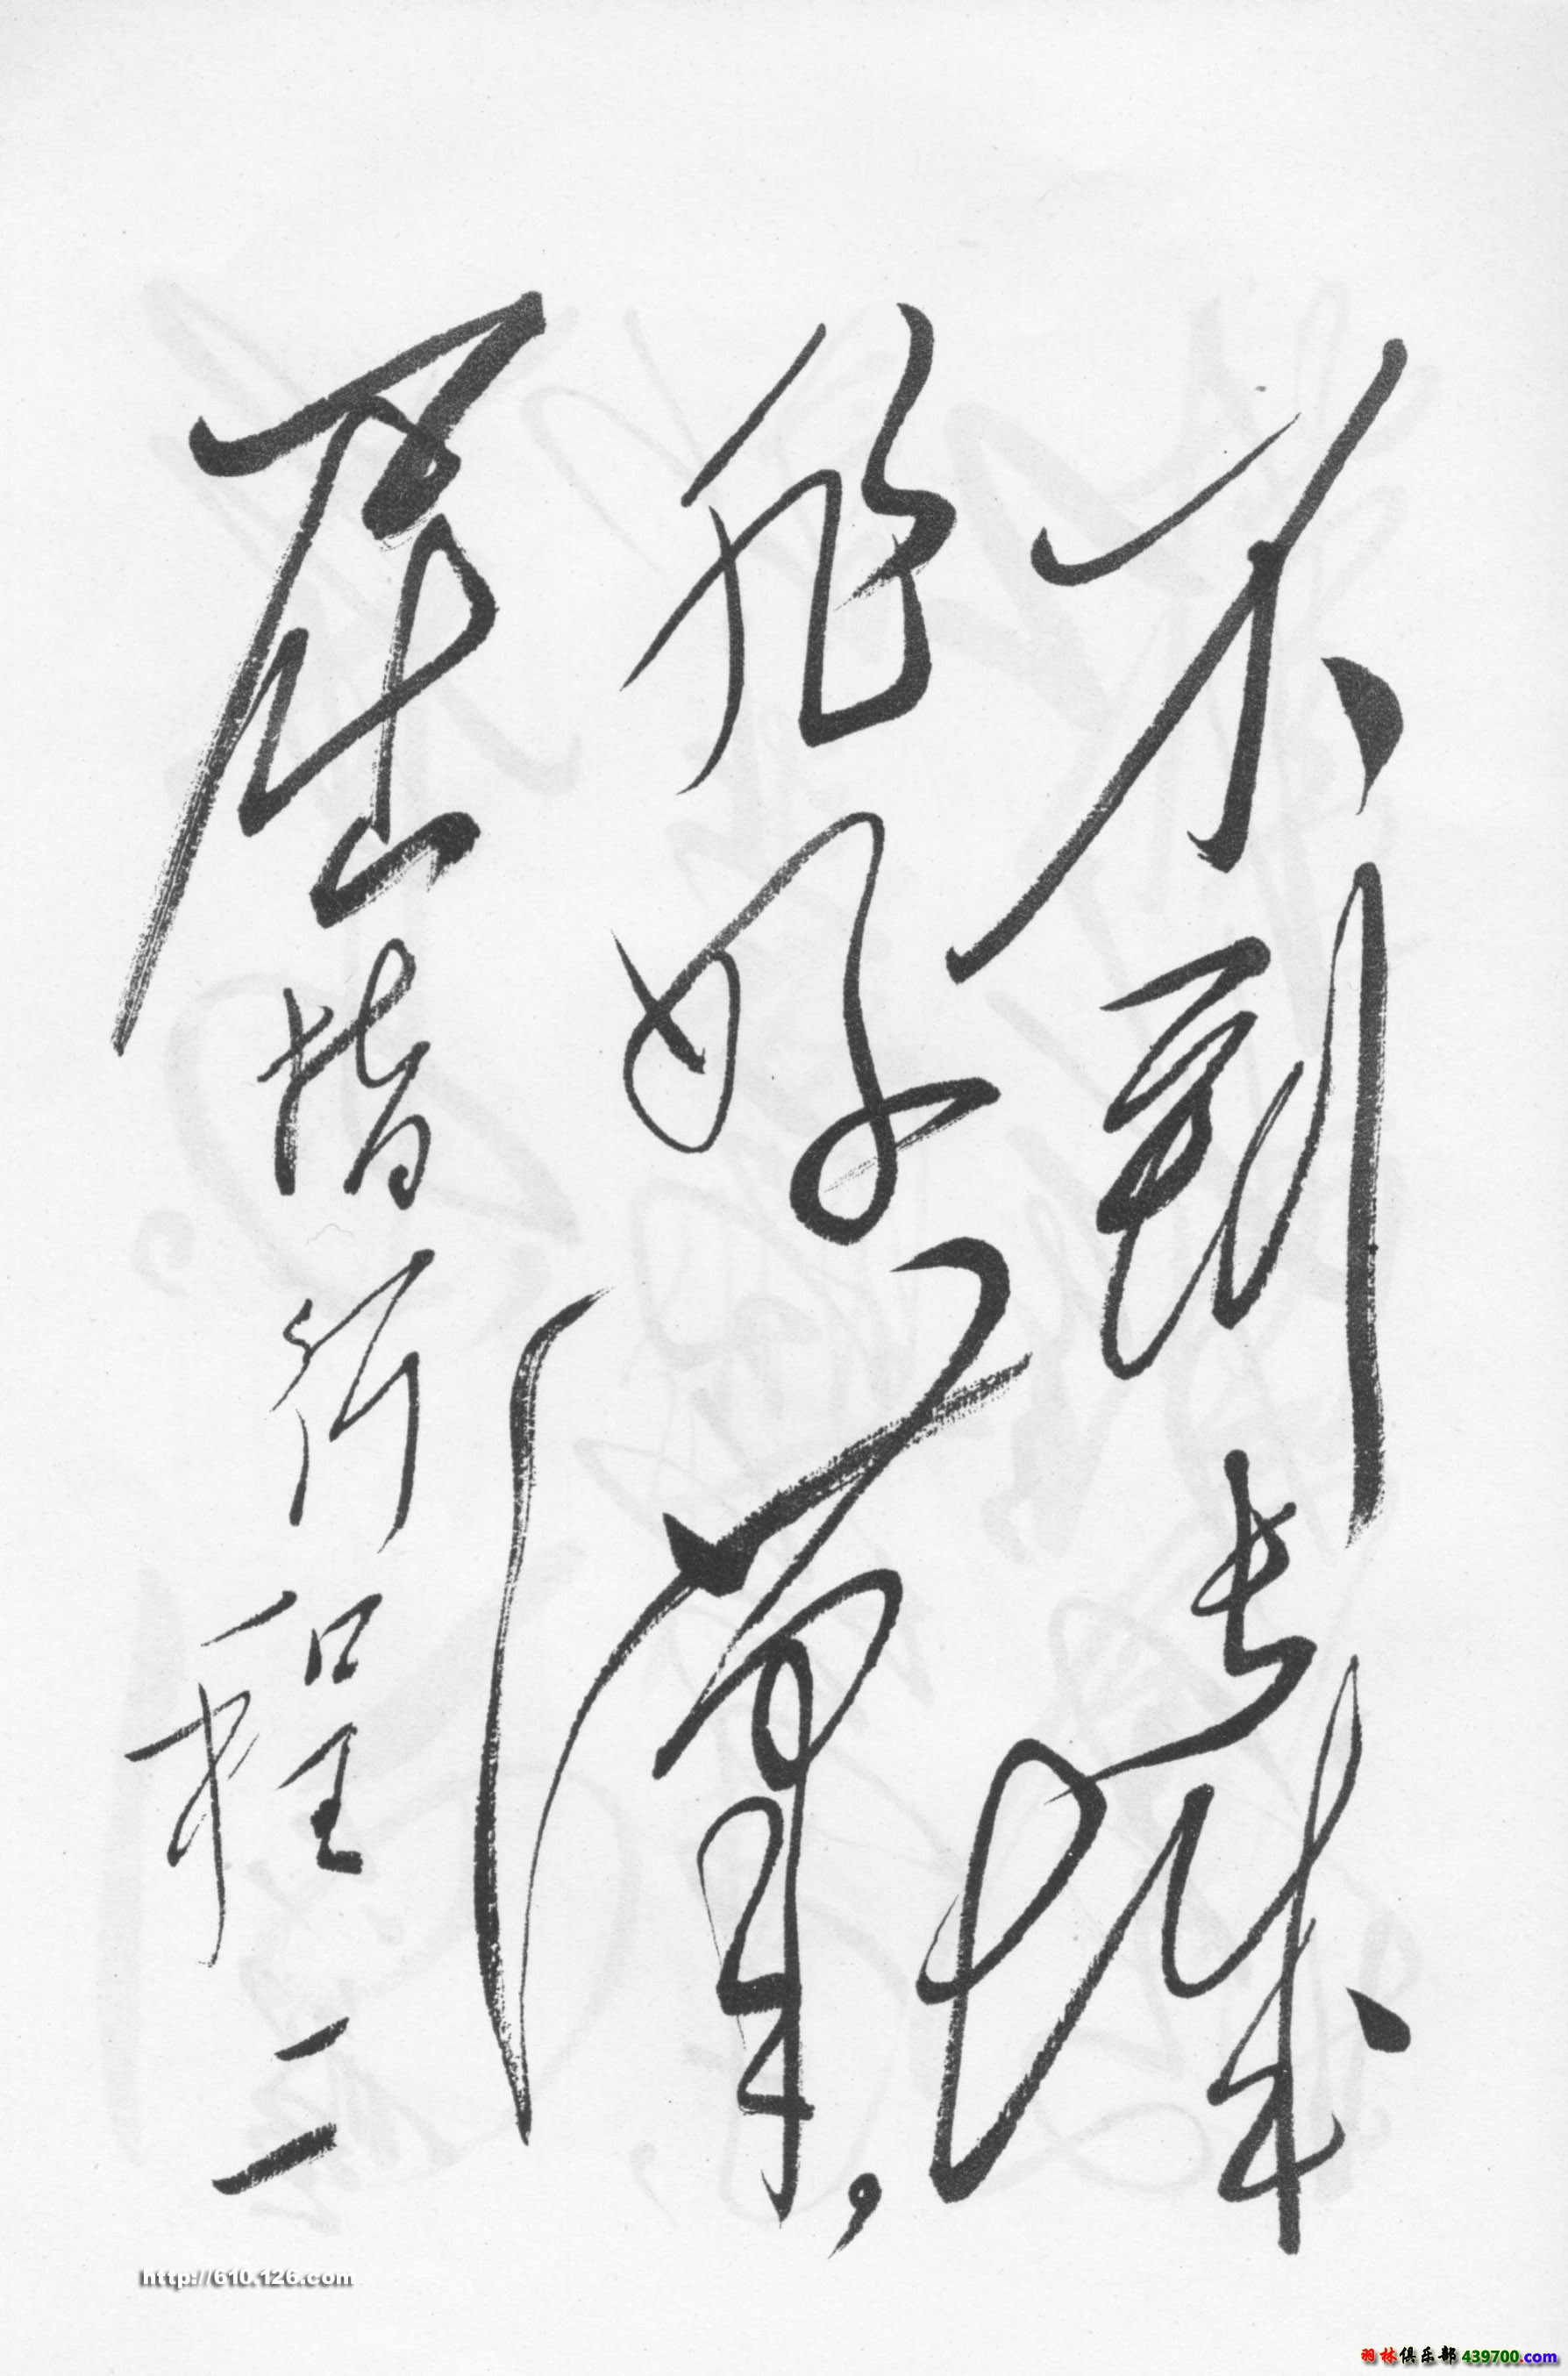 不到長城
非好漢，
屈指行程二
http://610.126.com
羽林俱乐部439700.com